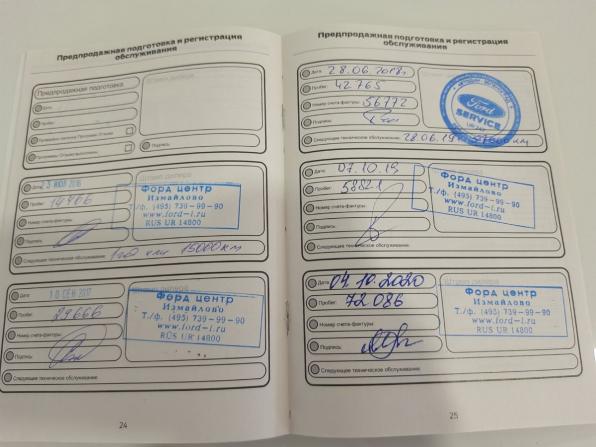 Предпродажная подготовка и регистрация
обслуживания
Предпродажная подготовка
Штамп дилера
Дата:
Пробег:
Подпись:
Дата: 23 ИЮЛ 2016
Пробег: 14406
Номер счета-фактуры:
Подпись:
Следующее техническое обслуживание: 1 год или 15000 км
Форд центр
Измайлово
Т./ф. (495) 739-99-90
www.ford-i.ru
RUS UR 14800
Дата: 10 СЕН 2017
Пробег: 29666
Номер счета-фактуры:
Подпись:
Следующее техническое обслуживание:
Форд центр
Измайлово
Т./ф. (495) 739-99-90
www.ford-i.ru
RUS UR 14800
24
Предпродажная подготовка и регистрация
обслуживания
Дата: 28.06.2018г
Пробег: 42765
Номер счета-фактуры: 56772
Подпись:
Следующее техническое обслуживание: 28.06.19
Ford
SERVICE
Дата: 07.10.19
Пробег: 58821
Номер счета-фактуры:
Подпись:
Следующее техническое обслуживание:
Форд центр
Измайлово
Т./ф. (495) 739-99-90
www.ford-i.ru
RUS UR 14800
Дата: 04.10.2020
Пробег: 72 086
Номер счета-фактуры:
Подпись:
Следующее техническое обслуживание:
Штамп дилера
Форд центр
Измайлово
Т./ф. (495) 739-99-90
www.ford-i.ru
RUS UR 14800
25